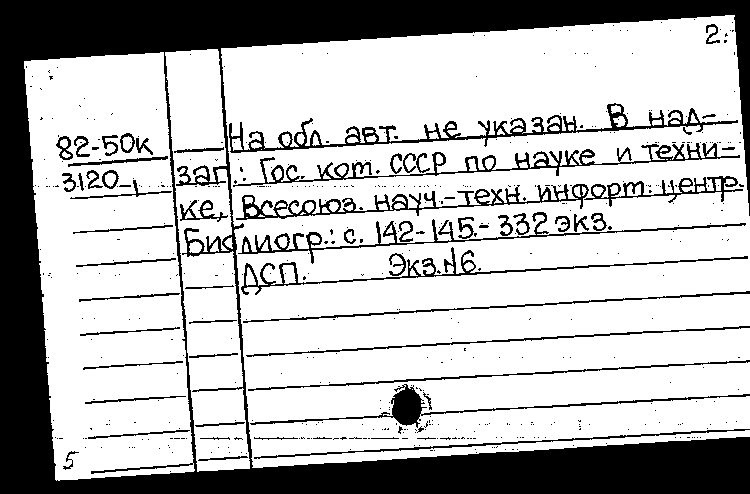 2.
82-50к На обл. авт. не указан. В над-
3120-1 заг.: Гос. ком. СССР по науке и техни-
ке, Всесоюз. науч.-техн. информ. центр.
Библиогр.: с. 142-145.- 332 экз.
ДСП. Экз.№6.
5